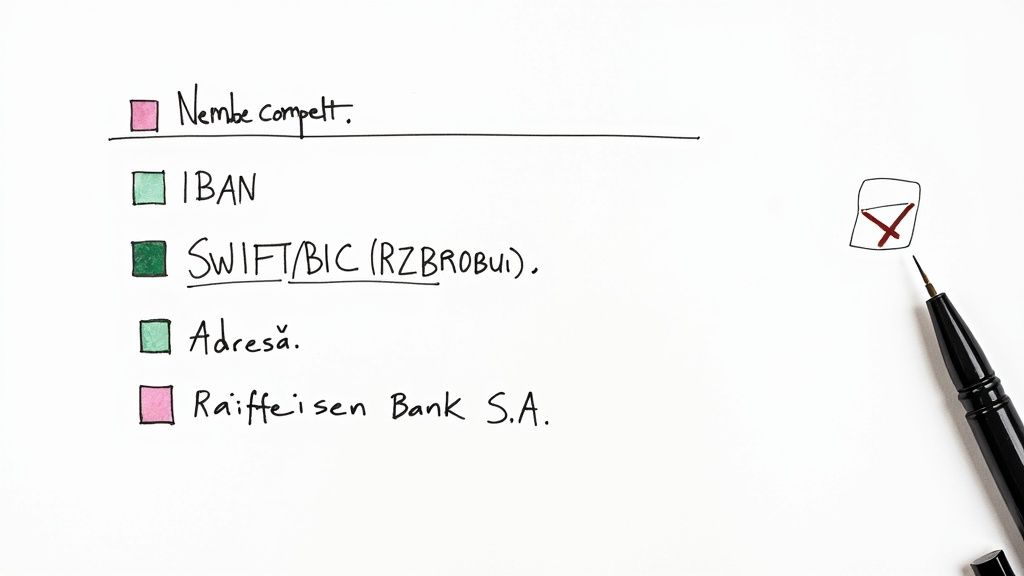 Nembe compelt.
IBAN
SWIFT/BIC (RZBROBUI).
Adresă.
Raiffeisen Bank S.A.